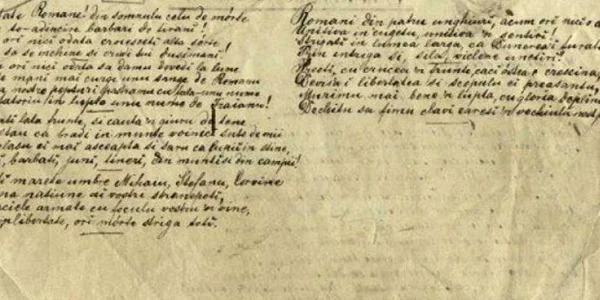 Romane! din somnulu celu de mórte
te-adâncira barbarii de tirani!
ori nici odata croiesceti alta sorte
sa se inchine si cruzii tei dusimani!
ori nici odata sa damu dovedi la lume
mani mai curge unu sange de Romanu
nostre pepturi pastramu cu fala-unu nume
in lupte unu nume de Traianu!
lata frunte, si cauta 'n giuru de tene
stau ca bradi in munte voinici sute de mii
ei mai asceapta si saru ca lupii in stine,
barbati, juni, tineri, din munti si din campii!
marete umbre Mihaiu, Stefanu, Corvine
natiune ai vostri stranepoti,
armate cu foculu vostru 'n vine,
ori mórte striga toti.
Romani din patru unghiuri, acum ori nici o
Uniti-va in cugetu, uniti-va 'n sentiri!
Strigati in lumea larga, ca Dunerea-i furata
Prin intriga si, sila, viclene uneltiri!
Preoti, cu crucea 'n frunte, caci óstea e crestina,
Devisa-i libertatea si scopulu ei preasantu,
Murimu mai bene 'n lupta, cu gloria deplina
Decâtu sa fimu sclavi earesi 'n vechiulu